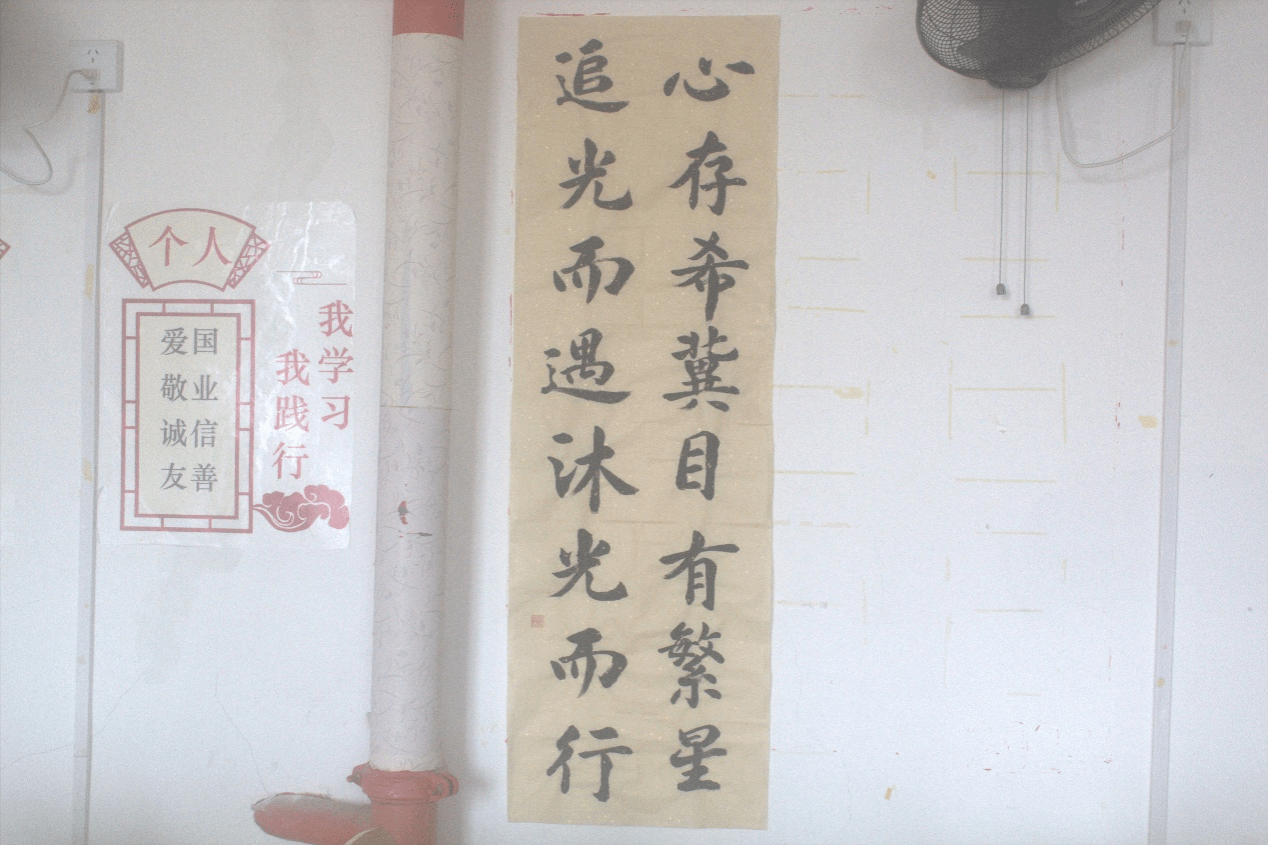 个人
爱国
敬业
诚信
友善
我学习
我践行
心存希冀目有繁星
追光而遇沐光而行